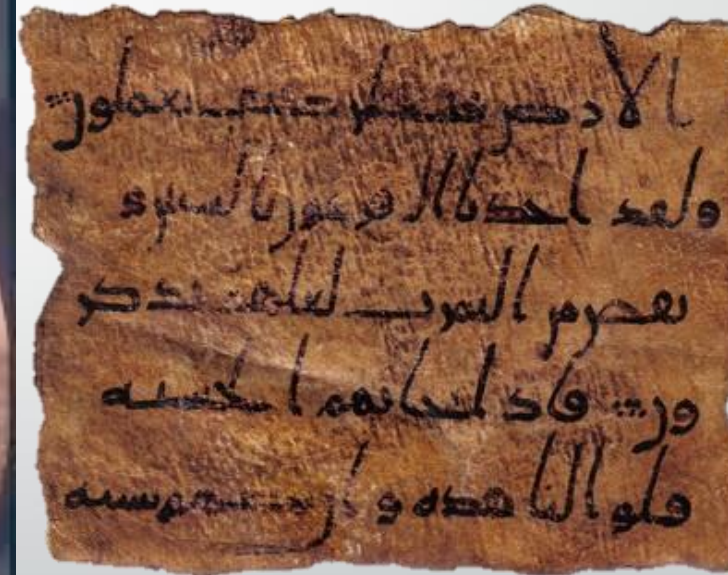 الارض فينظر كيف تعملون
ولقد اخذنا ال فرعون بالسنين و
نقص من الثمرت لعلهم يذكر
ون فاذا جاتهم الحسنه
قالوا لنا هذه وان تصبهم سيئه